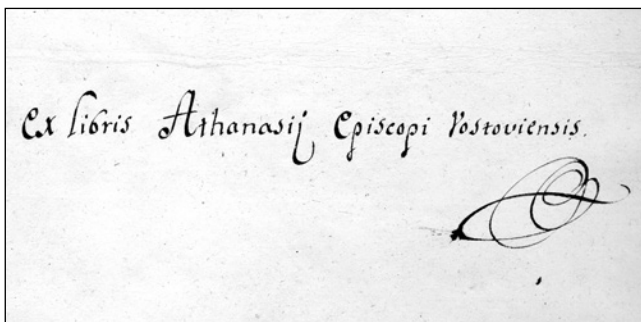 Ex libris Athanasij Episcopi Rostoviensis.